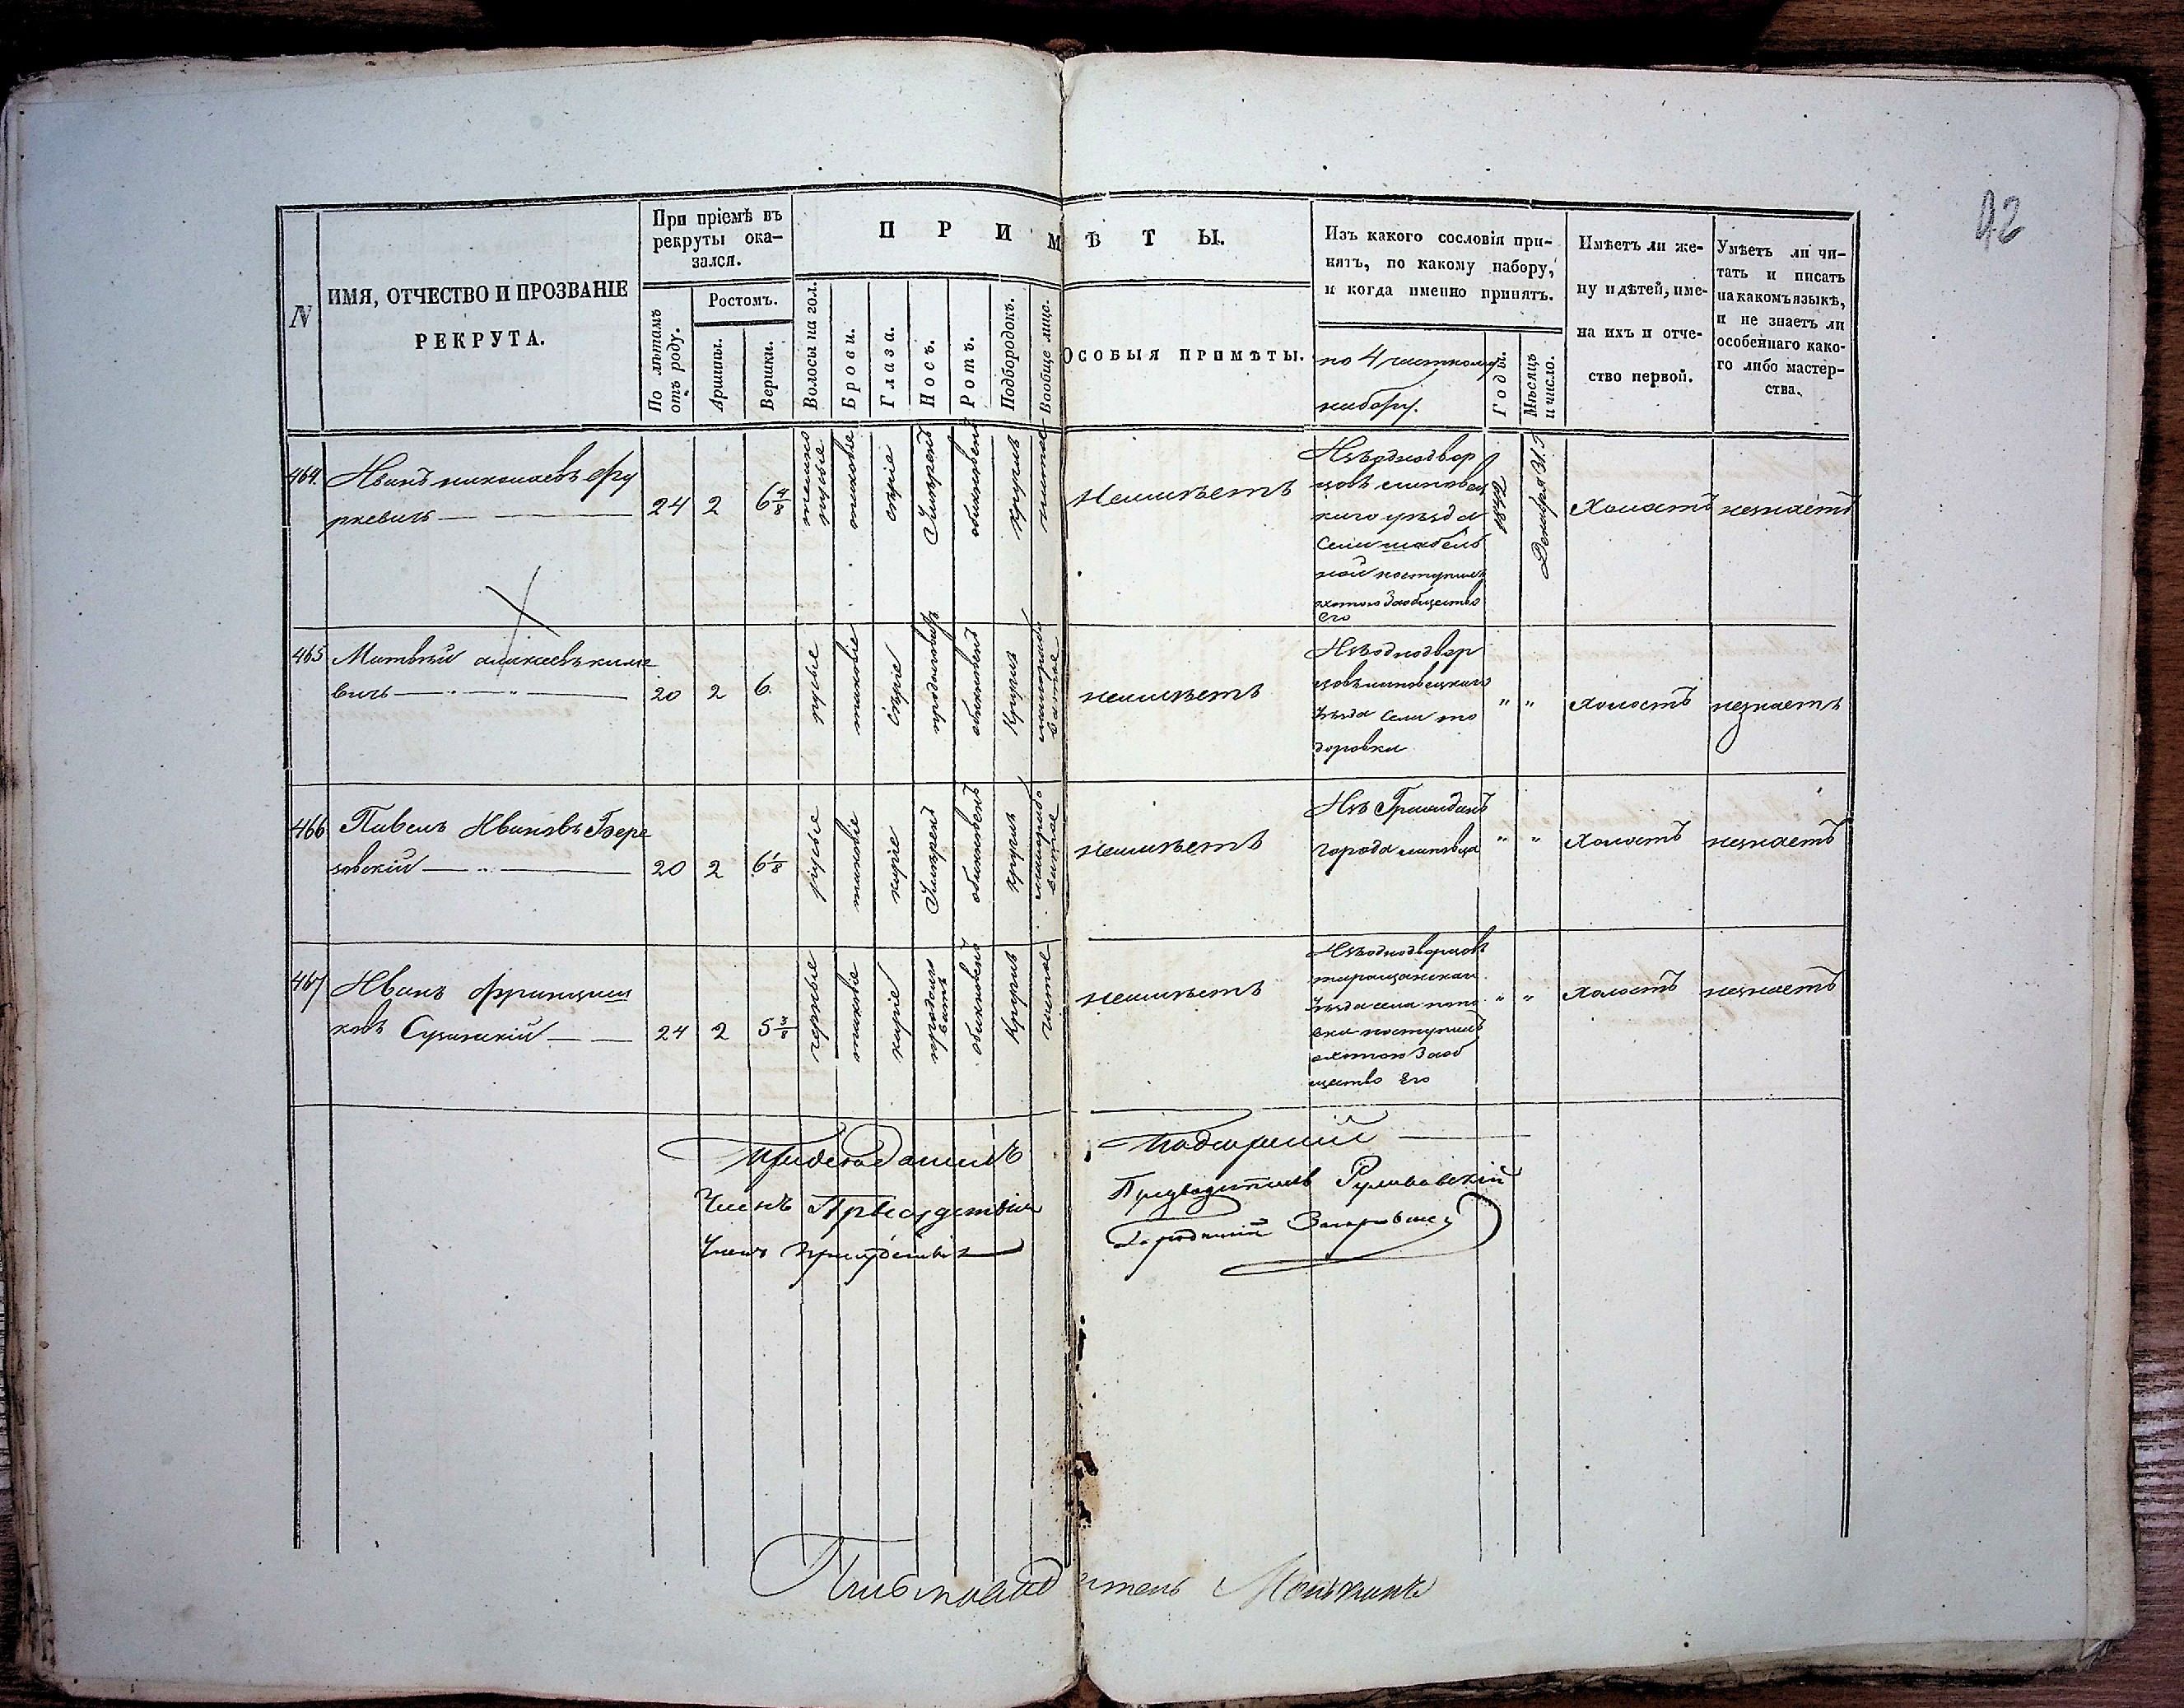 42
N
ИМЯ, ОТЧЕСТВО И ПРОЗВАНІЕ
РЕКРУТА.
При пріемѣ въ
рекруты ока-
зался.
По лѣтамъ
отъ роду.
Ростомъ.
Аршины.
Вершки.
ПРИМѢТЫ.
Волосы на гол.
Брови.
Глаза.
Носъ.
Ротъ.
Подбородокъ.
Вообще лице.
ОСОБЫЯ ПРИМѢТЫ.
Изъ какого сословія при-
нятъ, по какому набору,
и когда именно принятъ.
по 4 частному
набору.
Годы.
Мѣсяцъ
и число.
Имѣетъ ли же-
ну и дѣтей, име-
на ихъ и отче-
ство первой.
Умѣетъ ли чи-
тать и писать
на какомъ языкѣ,
и не знаетъ ли
особеннаго како-
го либо мастер-
ства.
464.
Иванъ николаевъ
24
2
6 4/8
темно
русые
таковые
сѣрые
Умѣренъ
обыкновенъ
круглъ
чистое
неимѣетъ
Изъ однодвор
цовъ липовец
каго уѣзда
Села
поступилъ
охотою За общество
Его
1842
Декабря 31.
Холостъ
незнаетъ
465
Матвѣй алексѣевъ
вичь
20
2
6.
русые
таковые
Сѣрые
продолговатъ
обыкновенъ
Круглъ
неимѣетъ
Изъ однодвор
цовъ липовецкаго
Уѣзда Села то
доровки
" "
Холостъ
незнаетъ
466
Павелъ Ивановъ Бере
зовскій
20
2
6 1/8
русые
таковые
каріе
Умѣренъ
обыкновенъ
круглъ
неимѣетъ
Изъ Гражданъ
города липовца
" "
Холостъ
незнаетъ
467
Иванъ францыш
ковъ
24
2
5
черные
таковые
каріе
продолго
ватъ
обыкновенъ
Круглъ
чистое
неимѣетъ
Изъ однодворцовъ
таращанскаго
Уѣзда села попо
вки поступилъ
охотою Заоб
щество Его
" "
Холостъ
незнаетъ
Предсѣдатель
Членъ Присудствія
Предводитель
Членъ присудствія